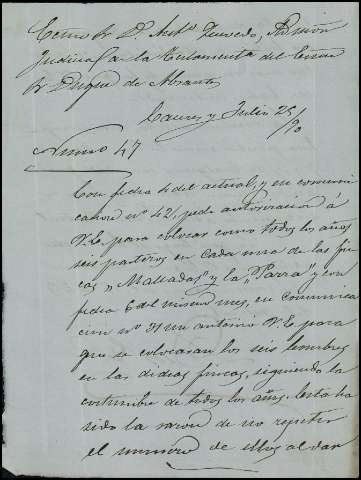 Excmo Sr. D. Antº Quevedo, Admon
Judicial de la Testamentaria del Excmo
Sr Duque de Abrantes
Caceres y Julio 25/90
Numero 47
Con fecha 4 del actual, y en comuni-
cacion nº 42, pedi autorizacion á
V.E. para colocar como todos los años
seis parteros en cada una de las fin-
cas "Matsadas" y la "Parra" y con
fecha 6 del mismo mes, en comunica-
cion nº 31 me autorizó V.E. para
que se colocaran los seis hombres
en las dichas fincas, siguiendo la
costumbre de todos los años. Esta ha
sido la razon de no repetir
el numero de ellos al dar